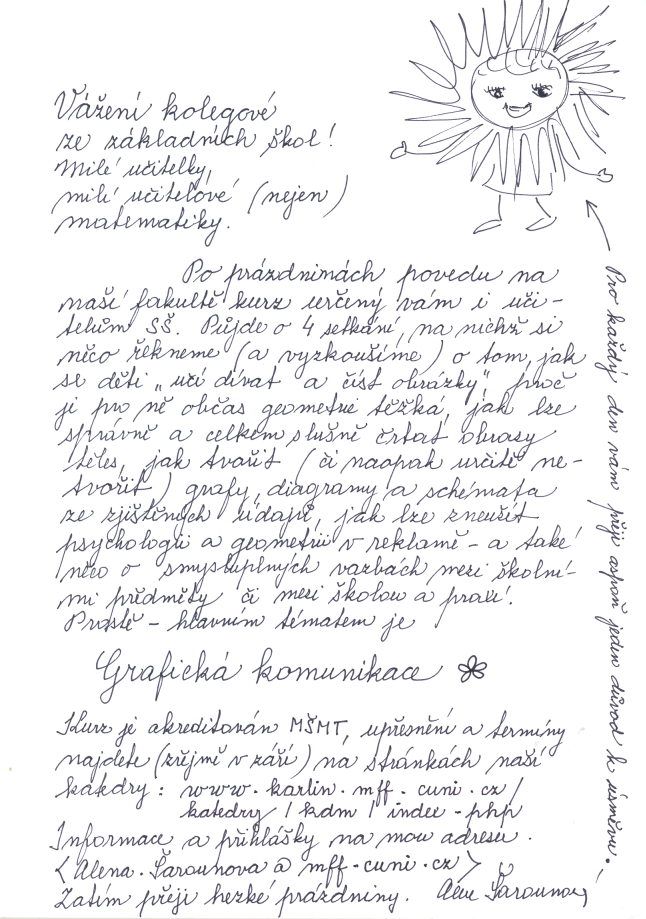 Vážení kolegové
ze základních škol!
Milé učitelky,
milí učitelové (nejen)
matematiky.
Po prázdninách povedu na
naší fakultě kurz určený vám i uči-
telům SŠ. Půjde o 4 setkání, na nichž si
něco řekneme (a vyzkoušíme) o tom, jak
se děti „učí dívat a číst obrázky", proč
je pro ně občas geometrie těžká, jak lze
správně a celkem slušně črtat obrazy
těles, jak tvořit (či naopak určitě ne-
tvořit) grafy, diagramy a schémata
ze zjištěných údajů, jak lze zneužít
psychologii a geometrii v reklamě - a také
něco o smysluplných vazbách mezi školní-
mi předměty či mezi školou a praxí.
Prostě - hlavním tématem je
Grafická komunikace
Kurz je akreditován MŠMT, upřesnění a termíny
najdete (zřejmě v září) na stránkách naší
katedry: www.karlin.mff.cuni.cz/
katedry/kdm/index.php
Informace a přihlášky na mou adresu.
<Alena.Sarounova@mff.cuni.cz>
Zatím přeji hezké prázdniny. Šarounová
Pro každý den vám přeji aspoň jeden důvod k úsměvu.